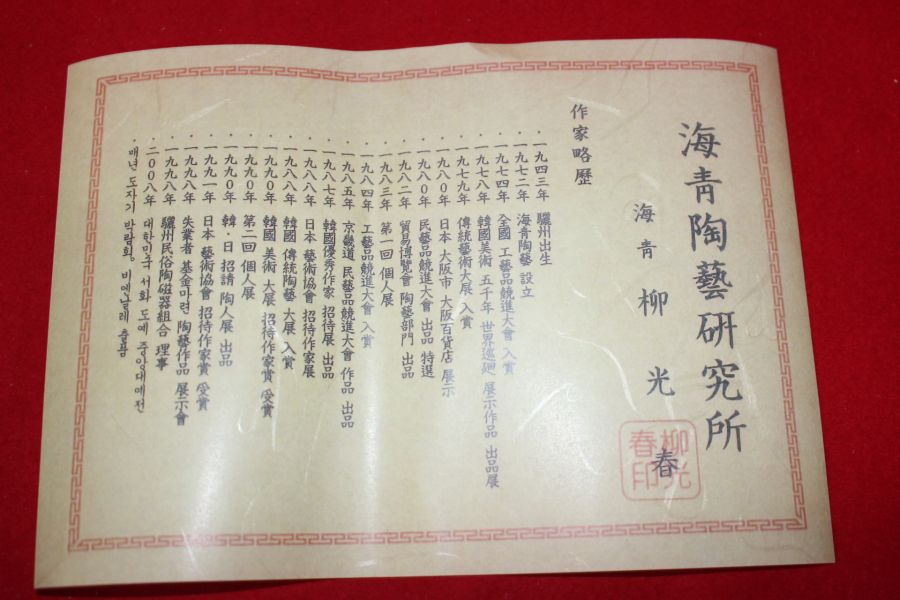 海青陶藝硏究所
海青 柳光春
柳光春印
作家略歷
· 一九四三年 驪州出生
· 一九七二年 海青陶藝 設立
· 一九七四年 全國 工藝品競進大會 入賞
· 一九七八年 韓國美術 五千年 世界巡廻 展示作品 出品展
· 一九七九年 傳統藝術大展 入賞
· 一九八0年 日本 大阪市 大阪百貨店 展示
· 一九八0年 民藝品競進大會 出品 特選
· 一九八二年 貿易博覽會 陶藝部門 出品
· 一九八三年 第一回 個人展
· 一九八四年 工藝品競進大會 入賞
· 一九八五年 京畿道 民藝品競進大會 作品 出品
· 一九八七年 韓國優秀作家 招待展 出品
· 一九八八年 日本 藝術協會 招待作家展
· 一九八八年 韓國 傳統陶藝 大展 入賞
· 一九九0年 韓國 美術 大展 招待作家賞 受賞
· 一九九0年 第二回 個人展
· 一九九0年 韓·日 招請 陶人展 出品
· 一九九一年 日本 藝術協會 招待作家賞 受賞
· 一九九八年 失業者 基金마련 陶藝作品 展示會
· 一九九八年 驪州民俗陶磁器組合 理事
· 二00八年 대한민국 서화 도예 중앙대예전
· 매년 도자기 박람회. 비엔날레 출품